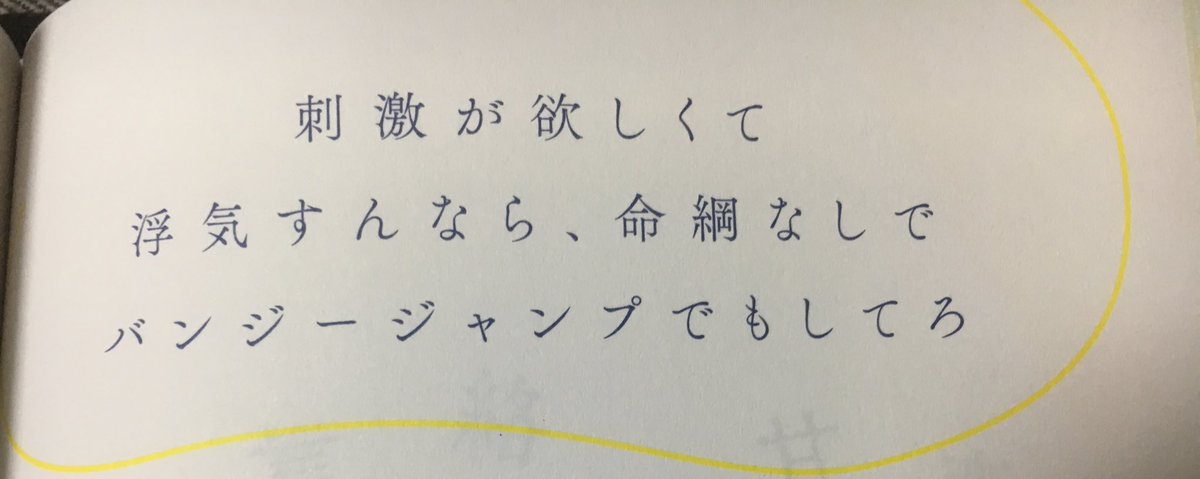 刺激が欲しくて
浮気すんなら、命綱なしで
バンジージャンプでもしてろ